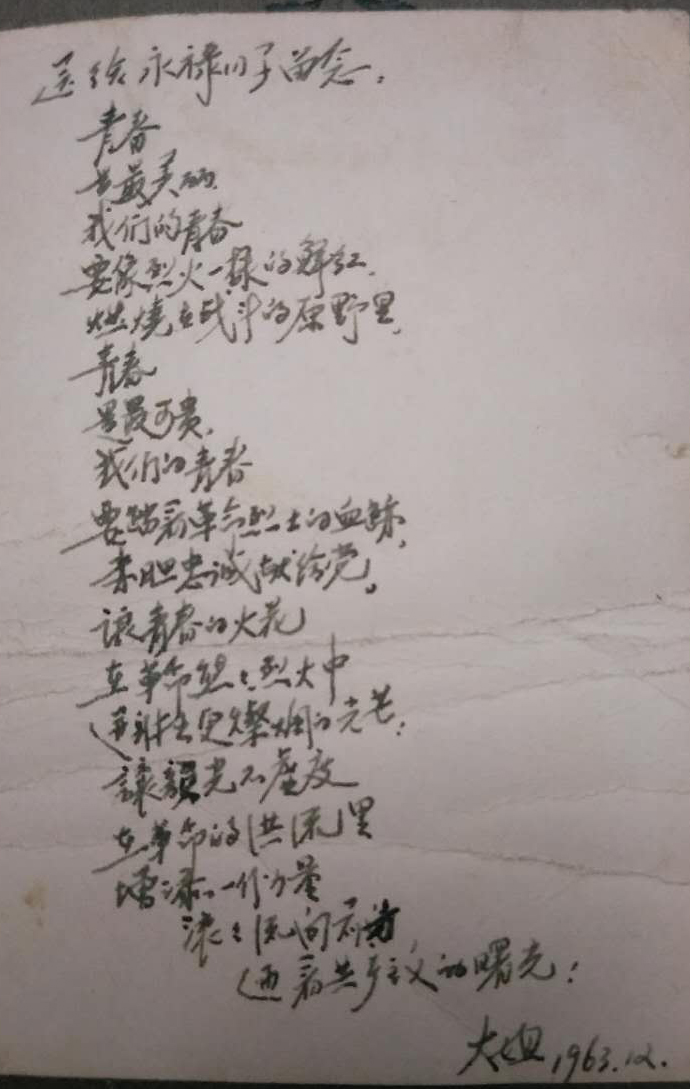 送给永禄川子留念。
青春
是最美丽,
我们的青春
要像烈火一样的鲜红,
燃燒在战斗的原野里,
青春
是最可贵,
我们的青春
要踏着革命烈士的血跡,
赤胆忠诚献给党。
讓青春的火花
在革命熊々烈火中
迸射出更燦烂的光芒;
讓韶光不虚度
在革命的洪流里
增添一份力量
滚々流向前方,
迎着共产主义的曙光;
大姐 1963.12.